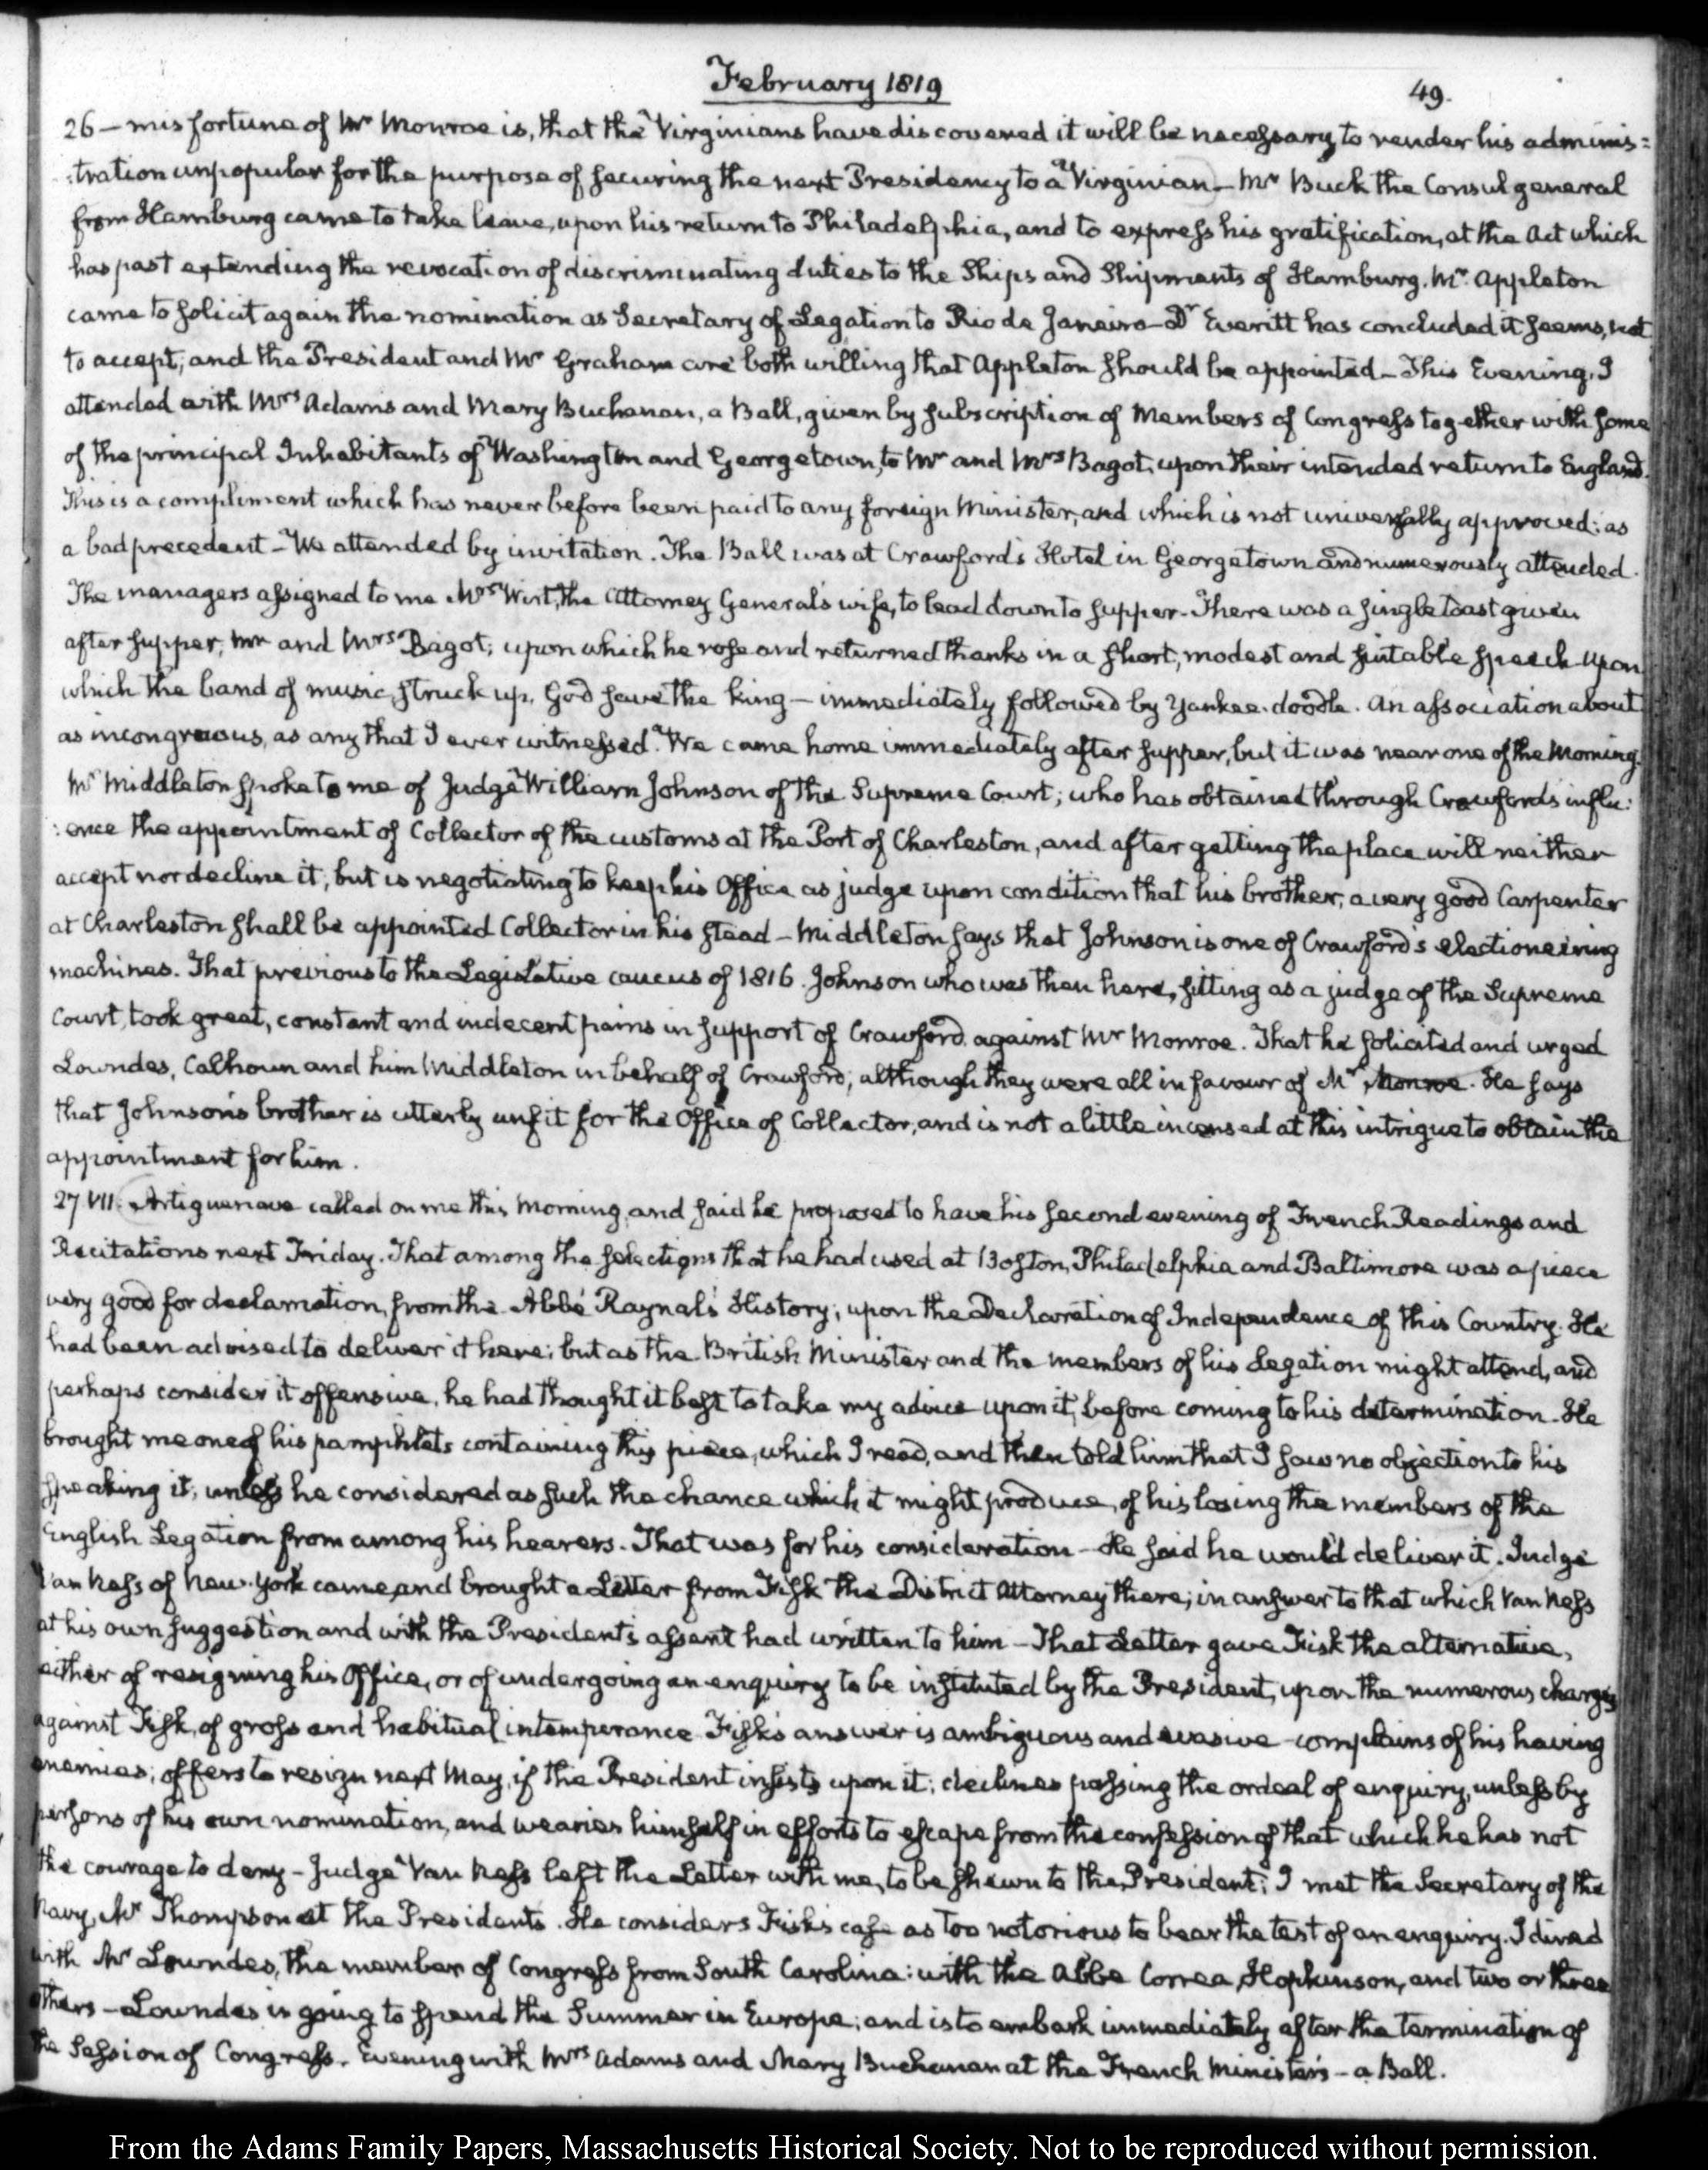 February 1819
49.
26 — misfortune of Mr Monroe is, that the Virginians have discovered it will be necessary to render his adminis=
:tration unpopular for the purpose of securing the next Presidency to a Virginian — Mr Buck the Consul general
from Hamburg came to take leave, upon his return to Philadelphia, and to express his gratification, at the Act which
has past extending the revocation of discriminating duties to the Ships and Shipments of Hamburg. Mr Appleton
came to solicit again the nomination as Secretary of Legation to Rio de Janeiro — Dr Everitt has concluded it seems, not
to accept; and the President and Mr Graham are both willing that Appleton should be appointed — This Evening, I
attended with Mrs Adams and Mary Buchanan, a Ball, given by subscription of Members of Congress together with some
of the principal Inhabitants of Washington and Georgetown, to Mr and Mrs Bagot, upon their intended return to England.
This is a compliment which has never before been paid to any foreign Minister, and which is not universally approved: as
a bad precedent — We attended by invitation. The Ball was at Crawford's Hotel in Georgetown and numerously attended.
The managers assigned to me Mrs Wirt, the Attorney General's wife, to lead down to supper — There was a single toast given
after supper, Mr and Mrs Bagot; upon which he rose and returned thanks in a short, modest and suitable speech — Upon
which the band of music, struck up, God save the King — immediately followed by Yankee doodle. An association about
as incongruous, as any that I ever witnessed. We came home immediately after supper, but it was near one of the Morning.
Mr Middleton spoke to me of Judge William Johnson of the Supreme Court; who has obtained through Crawford's influ:
:ence the appointment of Collector of the customs at the Port of Charleston, and after getting the place will neither
accept nor decline it; but is negotiating to keep his Office as judge upon condition that his brother, a very good Carpenter
at Charleston shall be appointed Collector in his stead — Middleton says that Johnson is one of Crawford's electioneering
machines. That previous to the Legislative caucus of 1816. Johnson who was then here, sitting as a judge of the Supreme
Court, took great, constant and indecent pains in support of Crawford, against Mr Monroe. That he solicited and urged
Lowndes, Calhoun and him Middleton in behalf of Crawford; although they were all in favour of Mr Monroe. He says
that Johnson's brother is utterly unfit for the Office of Collector, and is not a little incensed at this intrigue to obtain the
appointment for him.
27 VII. Artiguenave called on me this Morning, and said he proposed to have his second evening of French Readings and
Recitations next Friday. That among the selections that he had used at Boston, Philadelphia and Baltimore was a piece
very good for declamation, from the Abbé Raynal's History; upon the Declaration of Independence of this Country. He
had been advised to deliver it here; but as the British Minister and the members of his Legation might attend, and
perhaps consider it offensive, he had thought it best to take my advice upon it, before coming to his determination. He
brought me one of his pamphlets containing this piece, which I read, and then told him that I saw no objection to his
speaking it, unless he considered as such the chance which it might produce, of his losing the members of the
English Legation from among his hearers. That was for his consideration — He said he would deliver it. Judge
Van Ness of New-York came, and brought a Letter from Fisk the District Attorney there; in answer to that which Van Ness
at his own suggestion and with the President's assent had written to him — That Letter gave Fisk the alternative,
either of resigning his Office, or of undergoing an enquiry to be instituted by the President, upon the numerous charges
against Fisk, of gross and habitual intemperance. Fisk's answer is ambiguous and evasive — complains of his having
enemies; offers to resign next May, if the President insists upon it; declines passing the ordeal of enquiry, unless by
persons of his own nomination, and wearies himself in efforts to escape from the confession of that which he has not
the courage to deny — Judge Van Ness left the Letter with me, to be shewn to the President; I met the Secretary of the
Navy, Mr Thompson at the Presidents. He considers Fisk's case as too notorious to bear the test of an enquiry. I dined
with Mr Lowndes, the member of Congress from South Carolina: with the Abbe Correa, Hopkinson, and two or three
others — Lowndes is going to spend the Summer in Europe; and is to embark immediately after the termination of
the Session of Congress. Evening with Mrs Adams and Mary Buchanan at the French Minister's — a Ball.
From the Adams Family Papers, Massachusetts Historical Society. Not to be reproduced without permission.